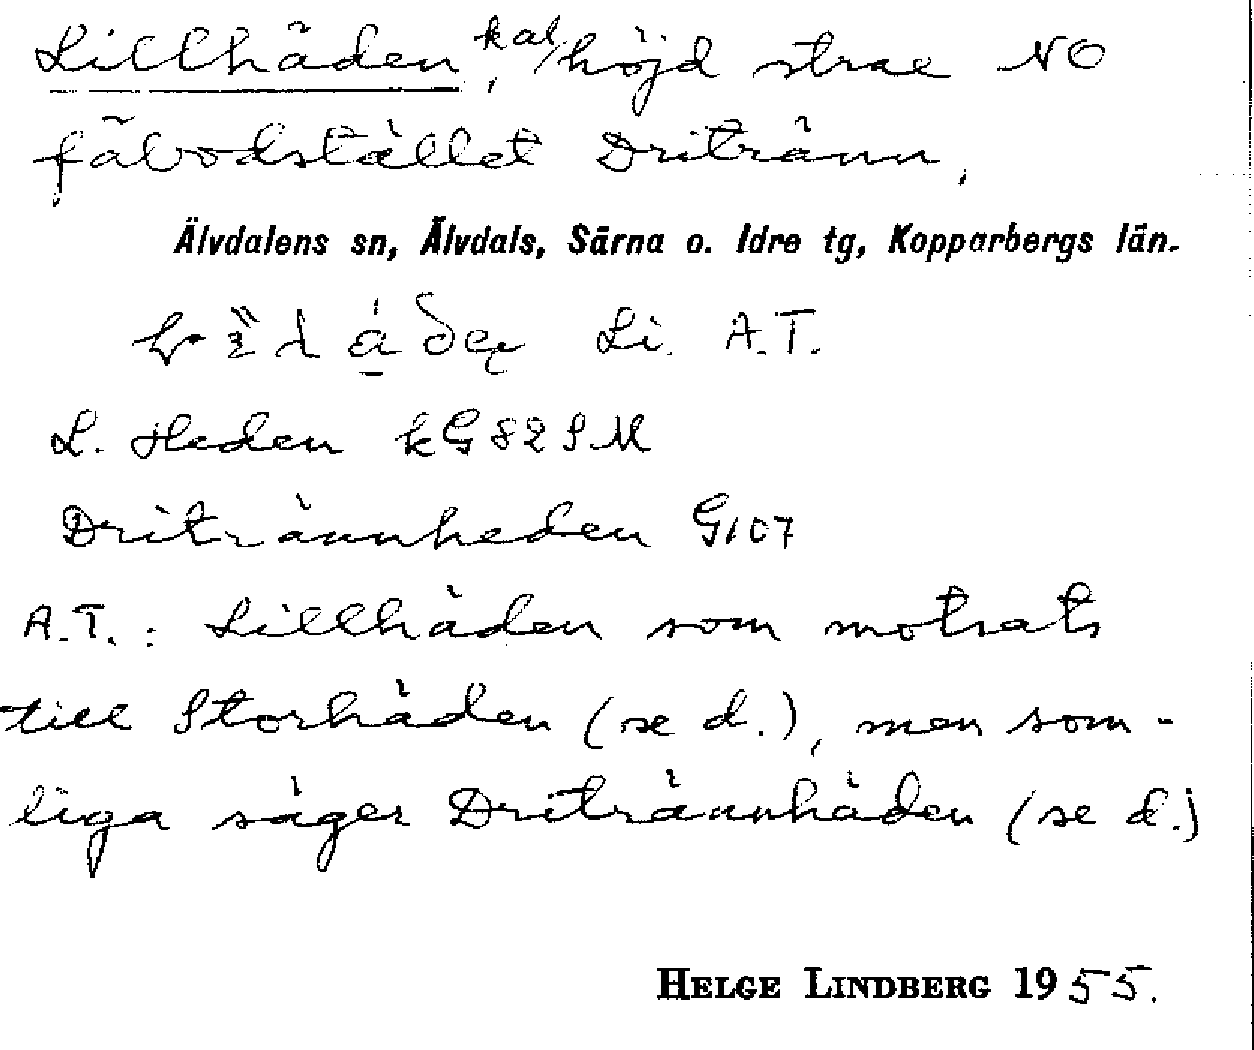 Lillhäden, kal höjd strax NO
fäbodstället Dritränn,
Älvdalens sn, Älvdals, Särna o. Idre tg, Kopparbergs län.
Li. A.T.
L. Heden kG 82 SM
Dritrännheden G107
A.T.: Lillhäden som motsats
till Storhäden (se d.), men som-
liga säger Dritrännhäden (se d.)
HELGE LINDBERG 1955.